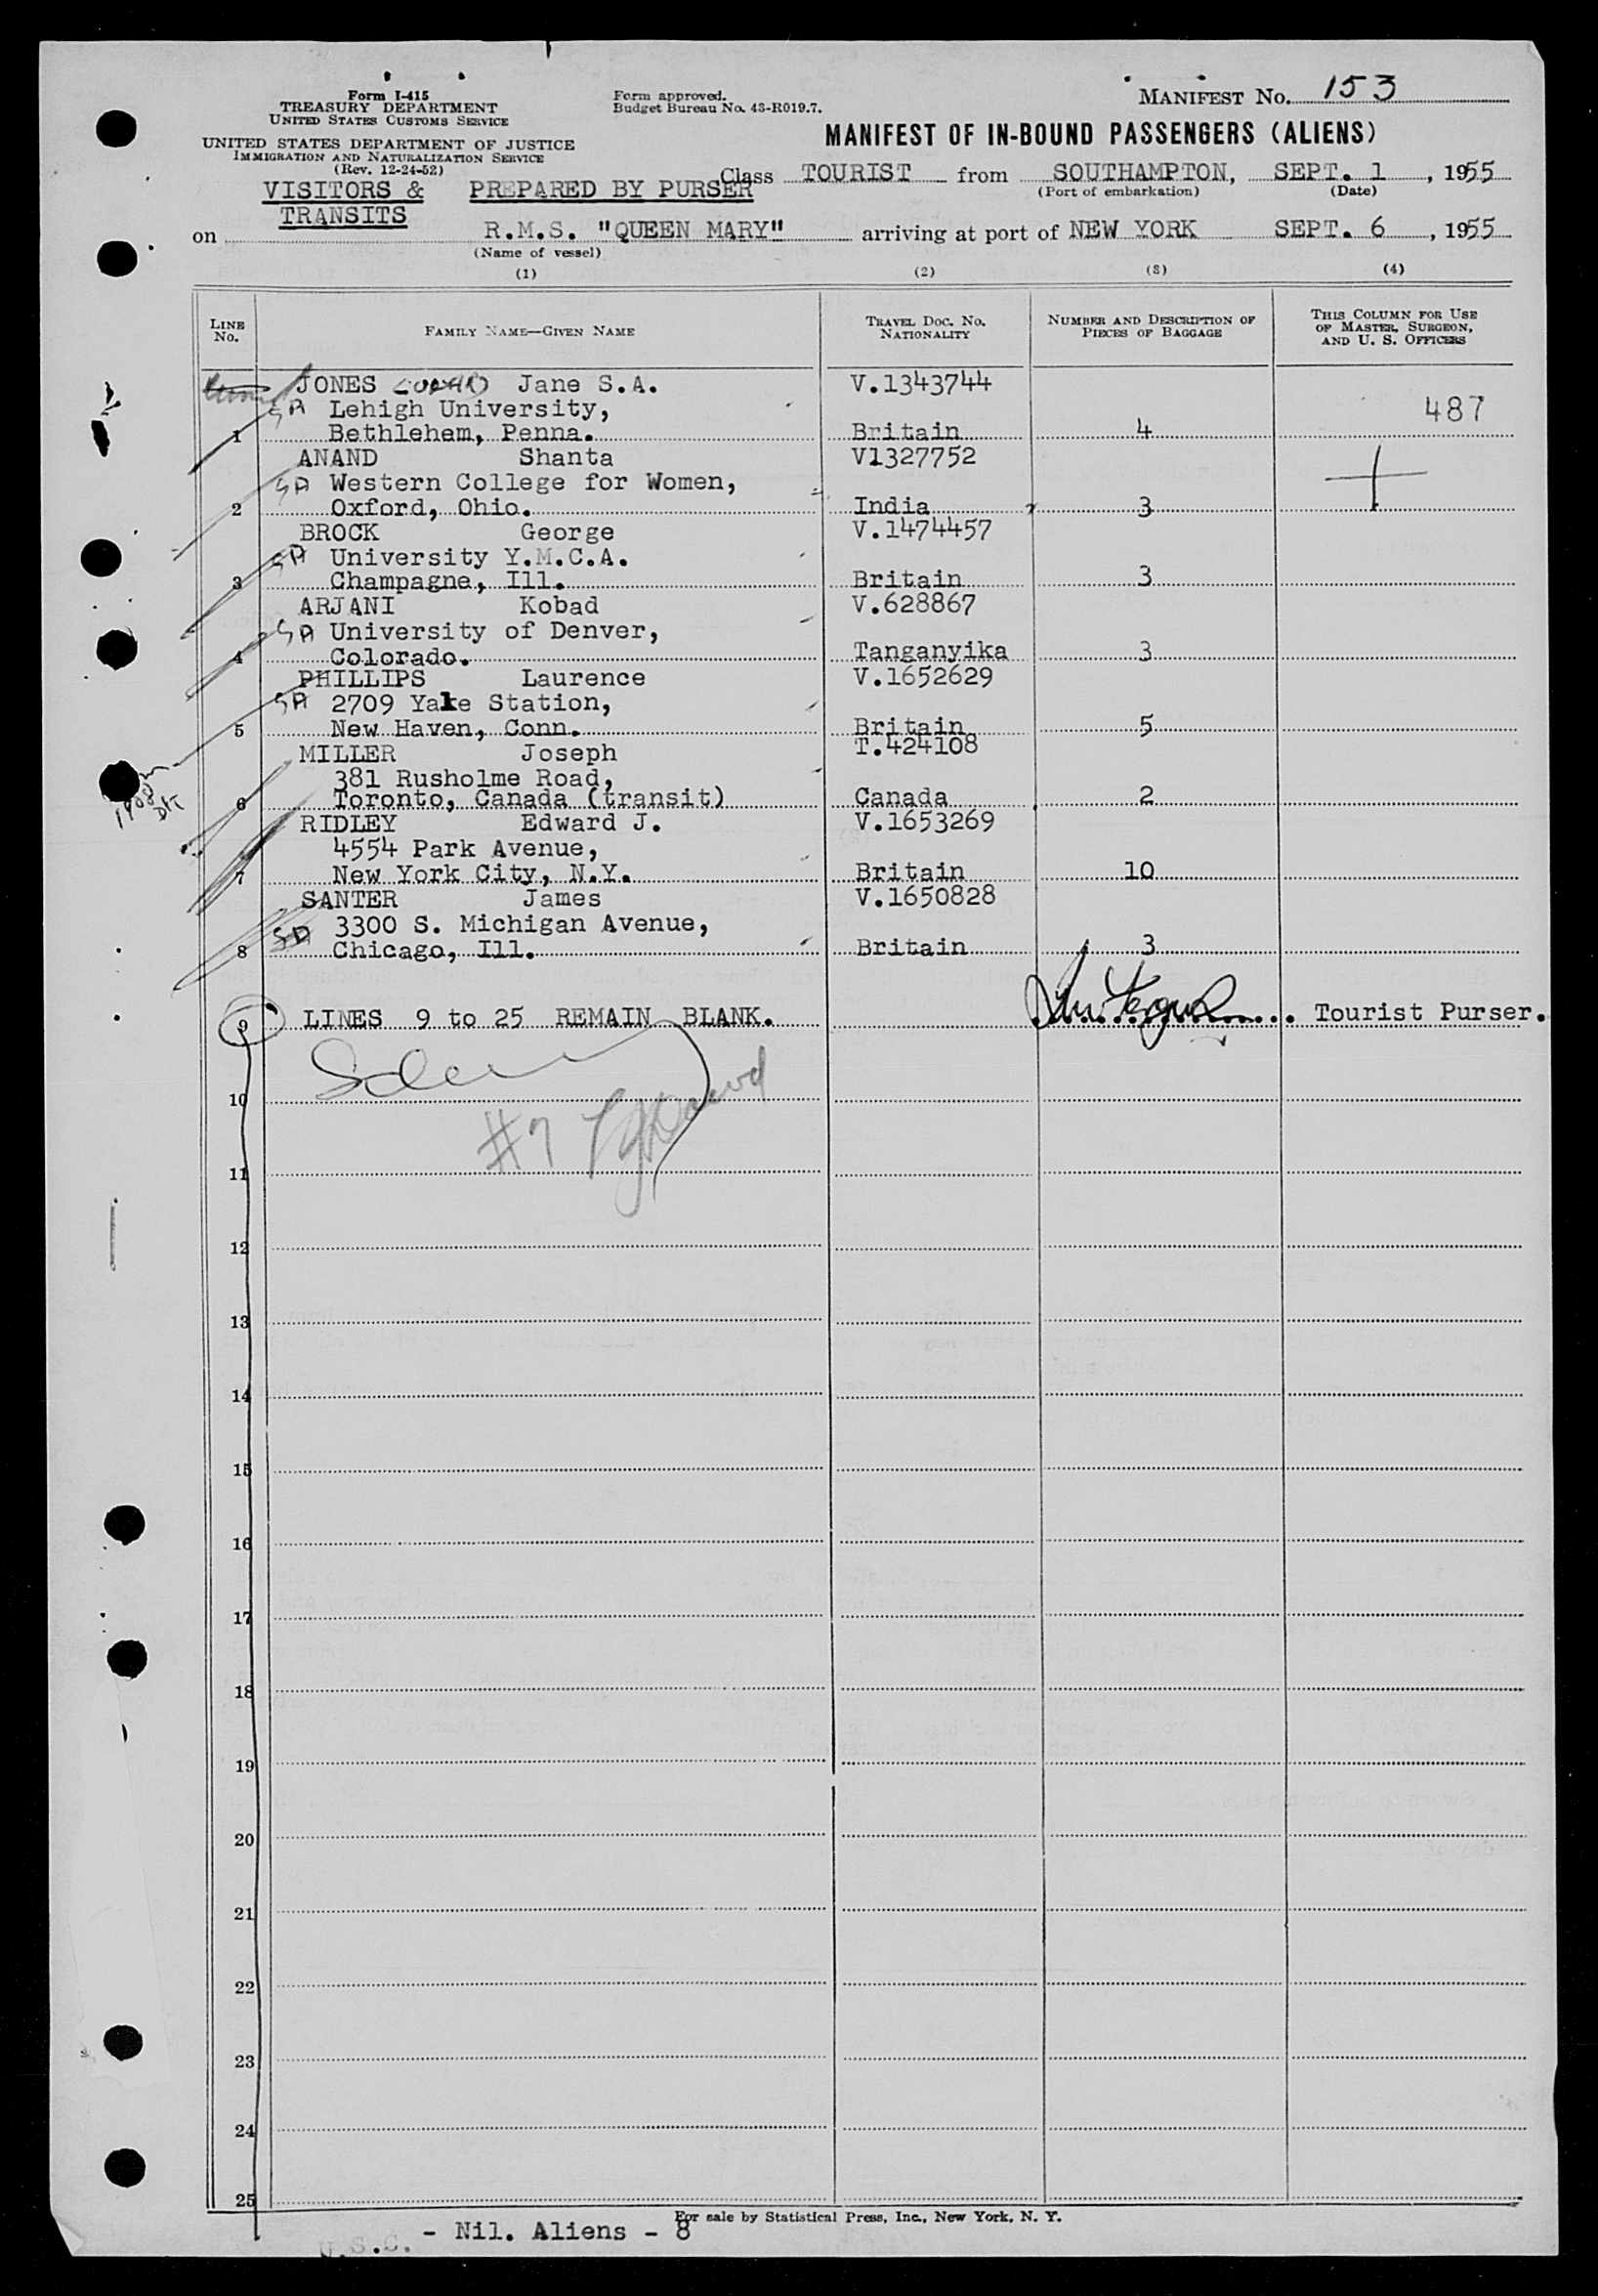 Form I-415
TREASURY DEPARTMENT
UNITED STATES CUSTOMS SERVICE
UNITED STATES DEPARTMENT OF JUSTICE
IMMIGRATION AND NATURALIZATION SERVICE
(Rev. 12-24-52)
Form approved.
Budget Bureau No. 43-R019.7.
MANIFEST No. 153
MANIFEST OF IN-BOUND PASSENGERS (ALIENS)
VISITORS & TRANSITS
PREPARED BY PURSER
Class TOURIST from SOUTHAMPTON, SEPT. 1, 1955
(Port of embarkation) (Date)
on R.M.S. "QUEEN MARY" arriving at port of NEW YORK SEPT. 6, 1955
(Name of vessel)
(1) (2) (3) (4)
LINE No. FAMILY NAME—GIVEN NAME TRAVEL DOC. No. NATIONALITY NUMBER AND DESCRIPTION OF PIECES OF BAGGAGE THIS COLUMN FOR USE OF MASTER, SURGEON, AND U. S. OFFICERS
JONES Jane S.A. V.1343744
SA Lehigh University, 487
1 Bethlehem, Penna. Britain 4
ANAND Shanta V1327752
SA Western College for Women,
2 Oxford, Ohio. India 3
BROCK George V.1474457
SA University Y.M.C.A.
3 Champagne, Ill. Britain 3
ARJANI Kobad V.628867
SA University of Denver,
4 Colorado. Tanganyika 3
PHILLIPS Laurence V.1652629
SA 2709 Yale Station,
5 New Haven, Conn. Britain 5
MILLER Joseph T.424108
381 Rusholme Road,
6 Toronto, Canada (transit) Canada 2
RIDLEY Edward J. V.1653269
4554 Park Avenue,
7 New York City, N.Y. Britain 10
SANTER James V.1650828
SA 3300 S. Michigan Avenue,
8 Chicago, Ill. Britain 3
9 LINES 9 to 25 REMAIN BLANK. Tourist Purser.
10
#7
11
12
13
14
15
16
17
18
19
20
21
22
23
24
25
For sale by Statistical Press, Inc., New York, N. Y.
U.S.C. - Nil. Aliens - 8